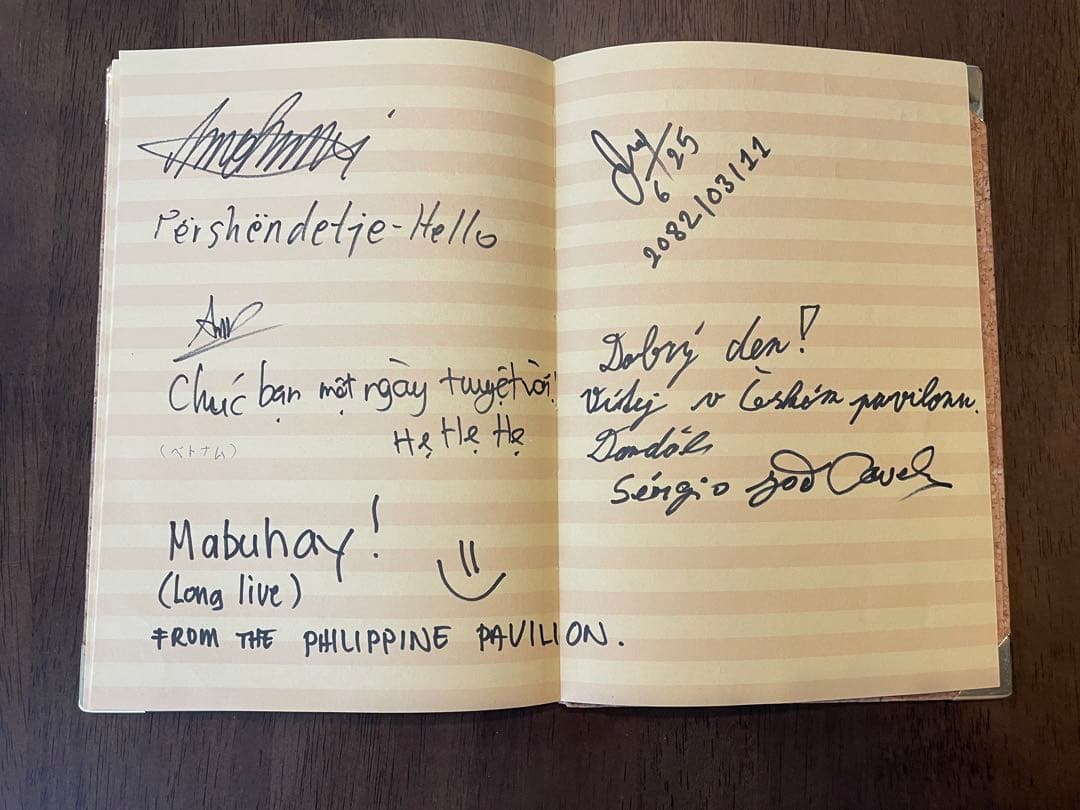 Përshëndetje - Hello
Chúc bạn một ngày tuyệt vời!
Hẹ Hẹ Hẹ
(ベトナム)
Mabuhay!
(Long live)
FROM THE PHILIPPINE PAVILION.
6/25
2082/03/11
Dobrý den!
Vítej v Českém pavilonu.
Sérgio